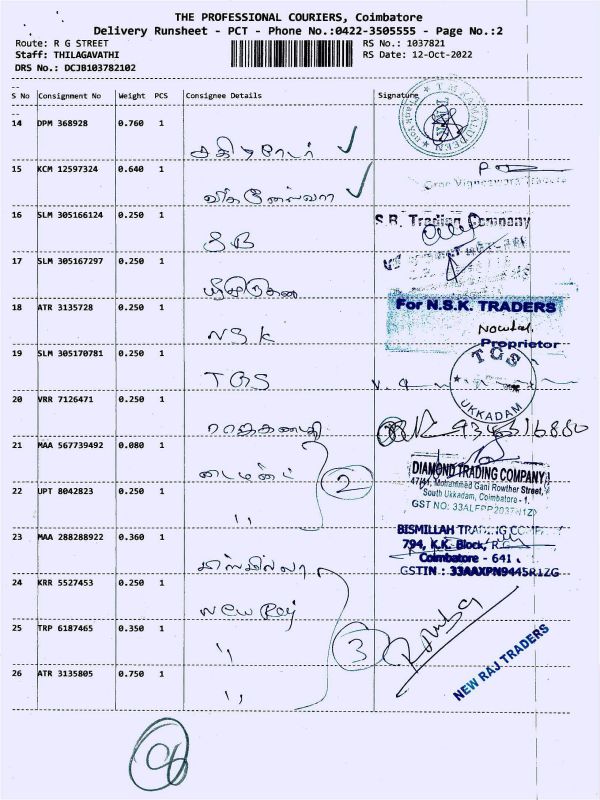 THE PROFESSIONAL COURIERS, Coimbatore
Delivery Runsheet - PCT - Phone No.:0422-3505555 - Page No.:2
Route: R G STREET RS No.: 1037821
Staff: THILAGAVATHI RS Date: 12-Oct-2022
DRS No.: DCJB103782102
S No Consignment No Weight PCS Consignee Details Signature
14 DPM 368928 0.760 1
15 KCM 12597324 0.640 1
விக்னேஸ்வரா
Sree Vigneswara Traders
16 SLM 305166124 0.250 1
S.B. Trading Company
SB
17 SLM 305167297 0.250 1
18 ATR 3135728 0.250 1
For N.S.K. TRADERS
NSK
Nowdal
Proprietor
19 SLM 305170781 0.250 1
TGS
TGS
UKKADAM
20 VRR 7126471 0.250 1
ராஜகணபதி
21 MAA 567739492 0.080 1
டைமண்ட்
2
DIAMOND TRADING COMPANY
47/41, Mohammed Gani Rowther Street,
South Ukkadam, Coimbatore - 1.
22 UPT 8042823 0.250 1
GST NO:
,,
23 MAA 288288922 0.360 1
BISMILLAH TRADING COMPANY
794, K.K. Block,
Coimbatore - 641
GSTIN : 33AAXPN9445R1ZG
பிஸ்மில்லா
24 KRR 5527453 0.250 1
New Raj
25 TRP 6187465 0.350 1
,,
3
NEW RAJ TRADERS
26 ATR 3135805 0.750 1
,,